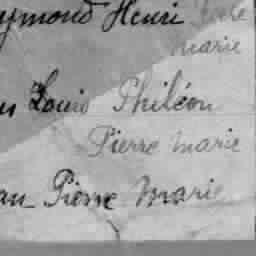 ymond Henri
Marie
Louis Philéon
Pierre Marie
an Pierre Marie